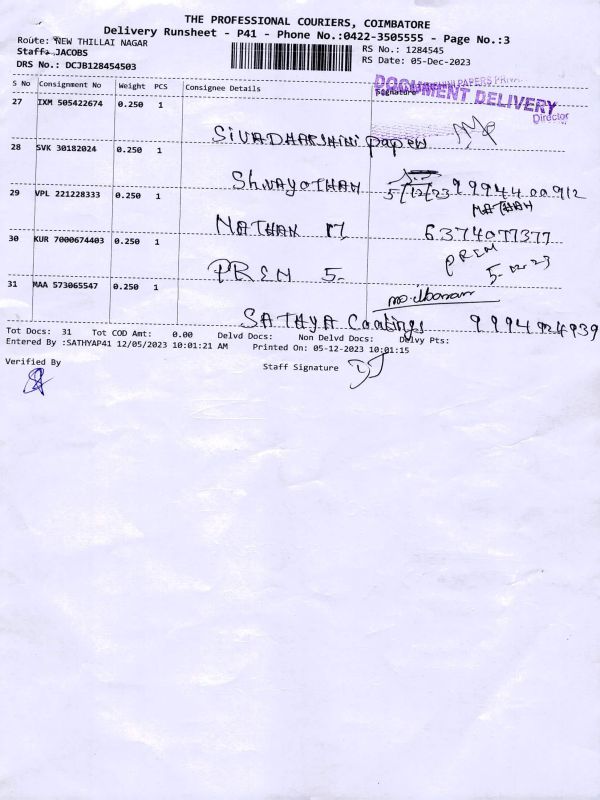 THE PROFESSIONAL COURIERS, COIMBATORE
Delivery Runsheet - P41 - Phone No.:0422-3505555 - Page No.:3
Route: NEW THILLAI NAGAR
RS No.: 1284545
Staff: JACOBS
RS Date: 05-Dec-2023
DRS No.: DCJB128454503
S No Consignment No Weight PCS Consignee Details Signature
PAPERS
DOCUMENT DELIVERY
Director
27 IXM 505422674 0.250 1
SIVADHARSHINI papers
28 SVK 30182024 0.250 1
5/12/23
29 VPL 221228333 0.250 1
NATHAN
NATHAN M
6374077377
30 KUR 7000674403 0.250 1
PREM
PREM S.
31 MAA 573065547 0.250 1
SATHYA Coatings
Tot Docs: 31 Tot COD Amt: 0.00 Delvd Docs: Non Delvd Docs: Delvy Pts:
Entered By :SATHYAP41 12/05/2023 10:01:21 AM Printed On: 05-12-2023 10:01:15
Verified By
Staff Signature